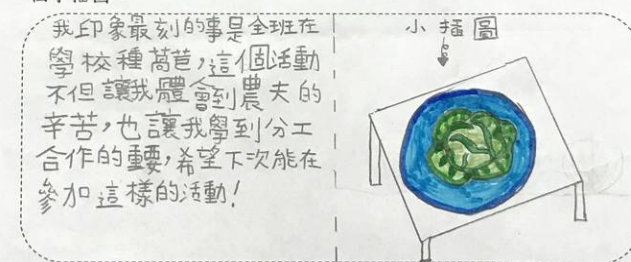 我印象最刻的事是全班在
學校種萵苣，這個活動
不但讓我體會到農夫的
辛苦，也讓我學到分工
合作的重要，希望下次能在
參加這樣的活動！
小插圖